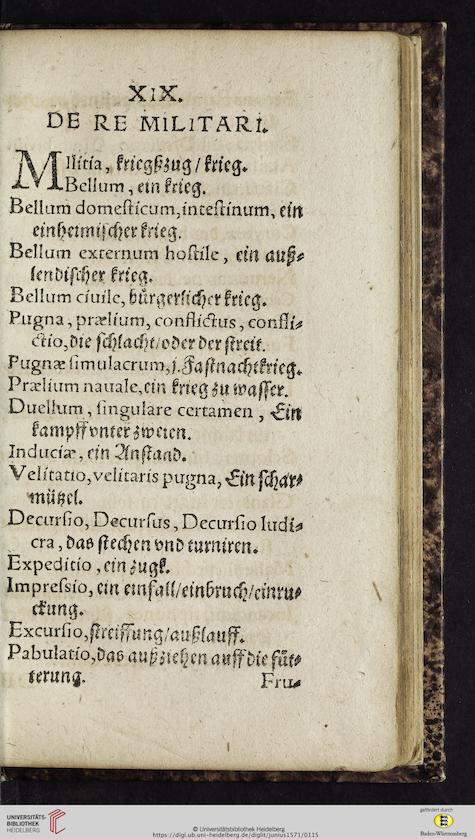 XIX.
DE RE MILITARI.
MIlitia, kriegßzug/ krieg.
Bellum, ein krieg.
Bellum domesticum, intestinum, ein
einheimischer krieg.
Bellum externum hostile, ein auß⸗
lendischer krieg.
Bellum ciuile, bürgerlicher krieg.
Pugna, prælium, conflictus, confli⸗
ctio, die schlacht/ oder der streit.
Pugnæ simulacrum, j. Fastnachtkrieg.
Prælium nauale, ein krieg zu wasser.
Duellum, singulare certamen, Ein
kampff vnter zweien.
Induciæ, ein Anstand.
Velitatio, velitaris pugna, Ein schar⸗
mützel.
Decursio, Decursus, Decursio ludi⸗
cra, das stechen vnd turniren.
Expeditio, ein zugk.
Impressio, ein einfall/ einbruch/ einru⸗
ckung.
Excursio, streiffung/ außlauff.
Pabulatio, das außziehen auff die füt⸗
terung.
Fru⸗
UNIVERSITÄTS-
BIBLIOTHEK
HEIDELBERG
© Universitätsbibliothek Heidelberg
https://digi.ub.uni-heidelberg.de/diglit/junius1571/0115
gefördert durch
Baden-Württemberg